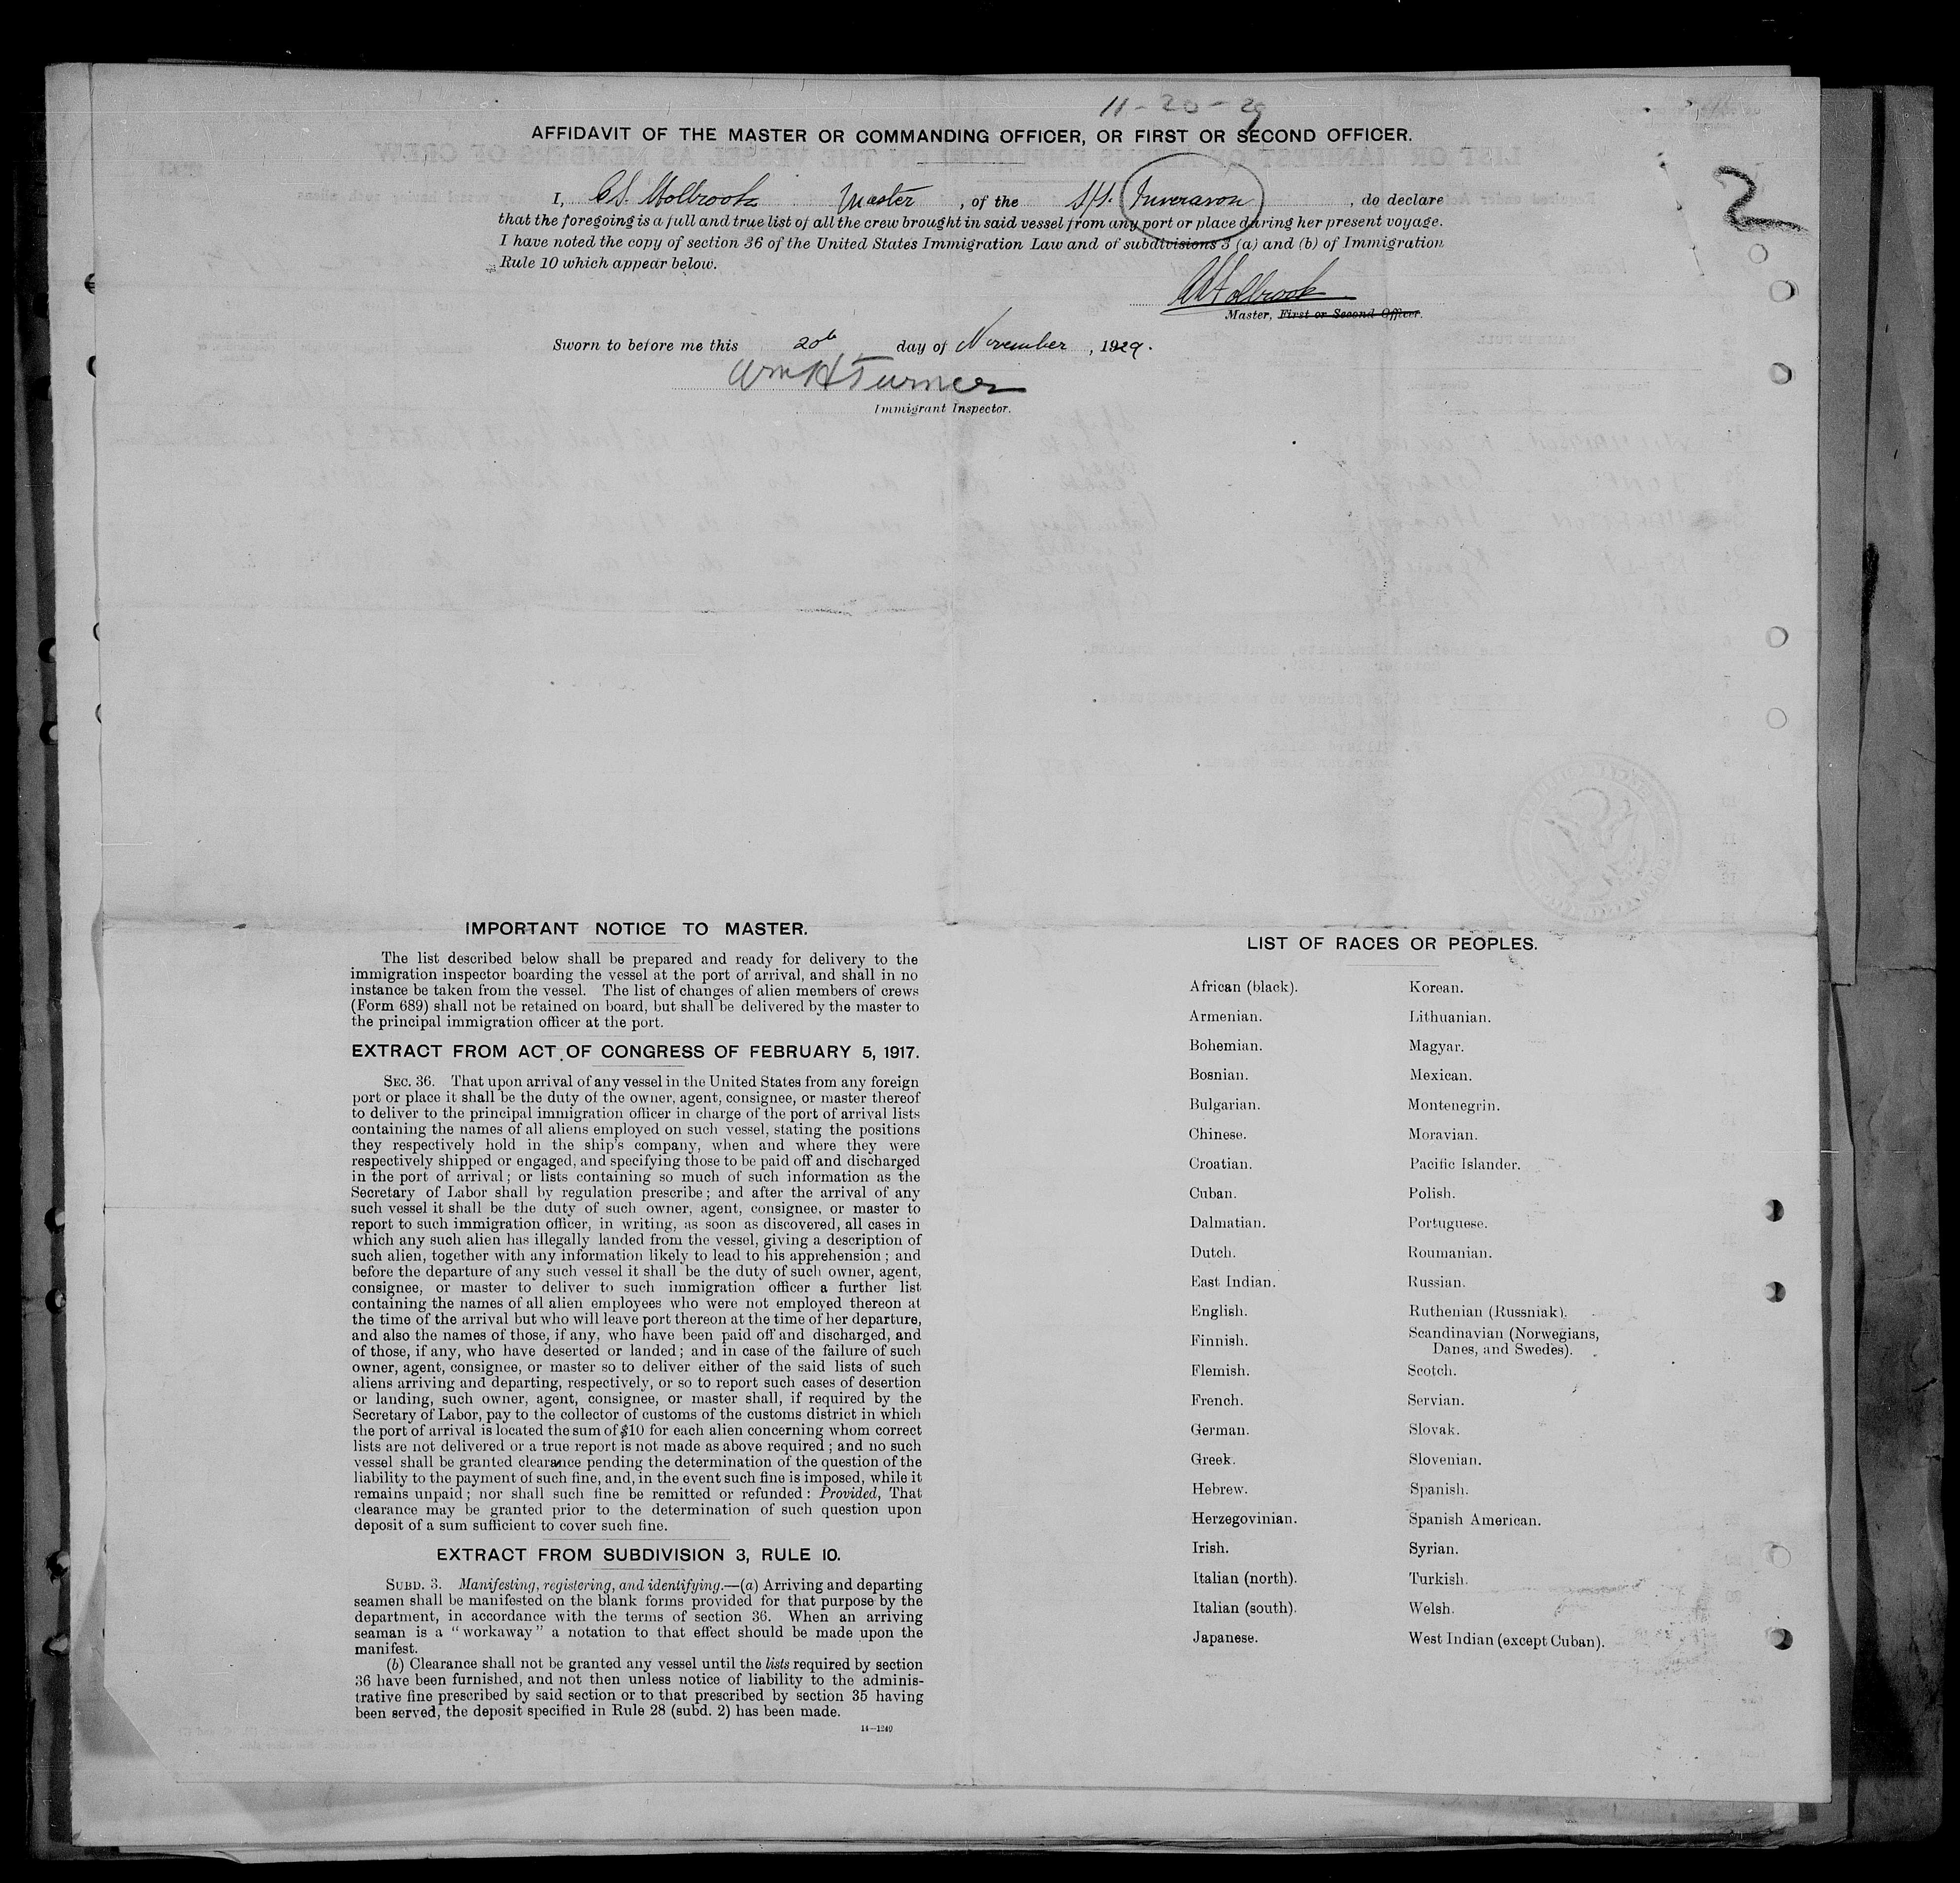 11-20-29
AFFIDAVIT OF THE MASTER OR COMMANDING OFFICER, OR FIRST OR SECOND OFFICER.
2
I, C.S. Holbrook Master, of the Inveravon, do declare
that the foregoing is a full and true list of all the crew brought in said vessel from any port or place during her present voyage.
I have noted the copy of section 36 of the United States Immigration Law and of subdivisions 3 (a) and (b) of Immigration
Rule 10 which appear below.
Holbrook
Master, First or Second Officer.
Sworn to before me this 20th day of November, 1929.
Wm H Turner
Immigrant Inspector.
IMPORTANT NOTICE TO MASTER.
The list described below shall be prepared and ready for delivery to the
immigration inspector boarding the vessel at the port of arrival, and shall in no
instance be taken from the vessel. The list of changes of alien members of crews
(Form 689) shall not be retained on board, but shall be delivered by the master to
the principal immigration officer at the port.
EXTRACT FROM ACT OF CONGRESS OF FEBRUARY 5, 1917.
SEC. 36. That upon arrival of any vessel in the United States from any foreign
port or place it shall be the duty of the owner, agent, consignee, or master thereof
to deliver to the principal immigration officer in charge of the port of arrival lists
containing the names of all aliens employed on such vessel, stating the positions
they respectively hold in the ship's company, when and where they were
respectively shipped or engaged, and specifying those to be paid off and discharged
in the port of arrival; or lists containing so much of such information as the
Secretary of Labor shall by regulation prescribe; and after the arrival of any
such vessel it shall be the duty of such owner, agent, consignee, or master to
report to such immigration officer, in writing, as soon as discovered, all cases in
which any such alien has illegally landed from the vessel, giving a description of
such alien, together with any information likely to lead to his apprehension; and
before the departure of any such vessel it shall be the duty of such owner, agent,
consignee, or master to deliver to such immigration officer a further list
containing the names of all alien employees who were not employed thereon at
the time of the arrival but who will leave port thereon at the time of her departure,
and also the names of those, if any, who have been paid off and discharged, and
of those, if any, who have deserted or landed; and in case of the failure of such
owner, agent, consignee, or master so to deliver either of the said lists of such
aliens arriving and departing, respectively, or so to report such cases of desertion
or landing, such owner, agent, consignee, or master shall, if required by the
Secretary of Labor, pay to the collector of customs of the customs district in which
the port of arrival is located the sum of $10 for each alien concerning whom correct
lists are not delivered or a true report is not made as above required; and no such
vessel shall be granted clearance pending the determination of the question of the
liability to the payment of such fine, and, in the event such fine is imposed, while it
remains unpaid; nor shall such fine be remitted or refunded: Provided, That
clearance may be granted prior to the determination of such question upon
deposit of a sum sufficient to cover such fine.
EXTRACT FROM SUBDIVISION 3, RULE 10.
SUBD. 3. Manifesting, registering, and identifying.—(a) Arriving and departing
seamen shall be manifested on the blank forms provided for that purpose by the
department, in accordance with the terms of section 36. When an arriving
seaman is a "workaway" a notation to that effect should be made upon the
manifest.
(b) Clearance shall not be granted any vessel until the lists required by section
36 have been furnished, and not then unless notice of liability to the adminis-
trative fine prescribed by said section or to that prescribed by section 35 having
been served, the deposit specified in Rule 28 (subd. 2) has been made.
14—1240
LIST OF RACES OR PEOPLES.
African (black).
Armenian.
Bohemian.
Bosnian.
Bulgarian.
Chinese.
Croatian.
Cuban.
Dalmatian.
Dutch.
East Indian.
English.
Finnish.
Flemish.
French.
German.
Greek.
Hebrew.
Herzegovinian.
Irish.
Italian (north).
Italian (south).
Japanese.
Korean.
Lithuanian.
Magyar.
Mexican.
Montenegrin.
Moravian.
Pacific Islander.
Polish.
Portuguese.
Roumanian.
Russian.
Ruthenian (Russniak).
Scandinavian (Norwegians,
Danes, and Swedes).
Scotch.
Servian.
Slovak.
Slovenian.
Spanish.
Spanish American.
Syrian.
Turkish.
Welsh.
West Indian (except Cuban).